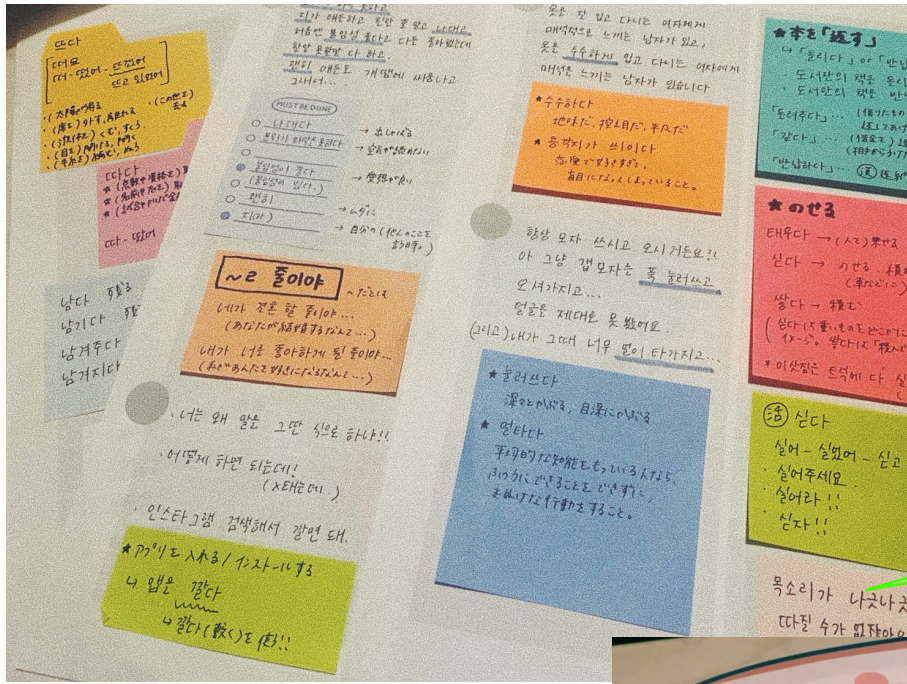 뜨다
떠요
떠-떴어-뜨겠어
뜨고 있었어
・(太陽や月が)昇る
・(この世を)去る
・(席を)外す、離れる
・(目を)開ける、開く
따다
따-땄어
남다 残る
남기다 残
남겨주다
남겨지다
지가 애들하고 친한 줄 알고 나대고
처음엔 붙임성 좋다고 다들 좋아했는데
할말 못할말 다 하고,
괜히 애들도 걔 땜에 싸움나고
그래서...
MUST BE DONE
나대다
→ 出しゃばる
분위기 파악을 못하다
→ 空気が読めない
붙임성이 좋다
(붙임성이 있다.)
→ 愛想が良い
괜히
→ ムダに
지(가)
→ 自分の(他人のことを言う時。)
~ㄹ 줄이야
~だとは
네가 결혼 할 줄이야...
(あなたが結婚するなんて...)
내가 너를 좋아하게 될 줄이야...
(私があんたを好きになるなんて...)
・너는 왜 말을 그딴 식으로 하냐!!
・어떻게 하면 되는데!
(x 태는데.)
・인스타그램 검색해서 깔면 돼.
★アプリを入れる/インストールする
↳ 앱을 깔다
↳ 깔다(敷く)を使う!!
옷을 잘 입고 다니는 여자에게
매력적으로 느끼는 남자가 있고,
옷을 수수하게 입고 다니는 여자에게
매력을 느끼는 남자가 있습니다
★수수하다
地味だ、控え目だ、平凡だ
★콩깍지가 쓰이다
恋愛で好きすぎて、
盲目になってしまっていること。
항상 모자 쓰시고 오시거든요?!
아 그냥 캡 모자를 푹 눌러쓰고
오셔가지고...
얼굴은 제대로 못 봤어요.
(그리고) 내가 그때 너무 멍이 타가지고...
★눌러쓰다
深々とかぶる、目深にかぶる
★멍타다
平均的な知能をもっている人なら、
ふつうにできることをできずに、
まぬけな行動をすること。
★本を「返す」
↳「돌리다」or「반납
・도서관의 책은 돌리
・도서관의 책은 반납
「돌려주다」...
(借りたもの
「갚다」...
(借金を)
「반납하다」...
★のせる
태우다 →(人を)乗せる
싣다 → のせる、積
(車などに)
쌓다 → 積む
★이삿짐은 트럭에 다 실
活 싣다
실어-실었어-싣고
・실어주세요
・실어라!!
・싣자!!
목소리가 나긋나긋
따질 수가 없잖아요